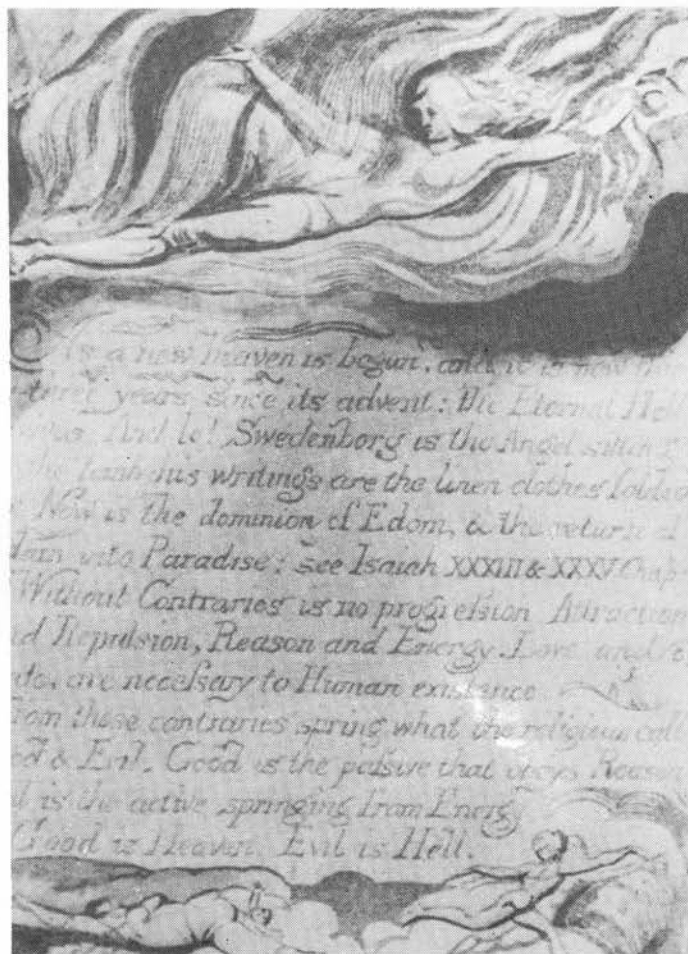 As a new heaven is begun, and it is now thir
-three years since its advent: the Eternal Hell
. And lo! Swedenborg is the Angel sitting
the tomb his writings are the linen clothes folded
Now is the dominion of Edom, & the return of
dam into Paradise: see Isaiah XXXIIII & XXXV Chap
Without Contraries is no progression Attraction
nd Repulsion, Reason and Energy, Love and
ate, are necessary to Human existence.
From these contraries spring what the religious call
ood & Evil. Good is the passive that obeys Reason
il is the active springing from Energy
Good is Heaven. Evil is Hell.